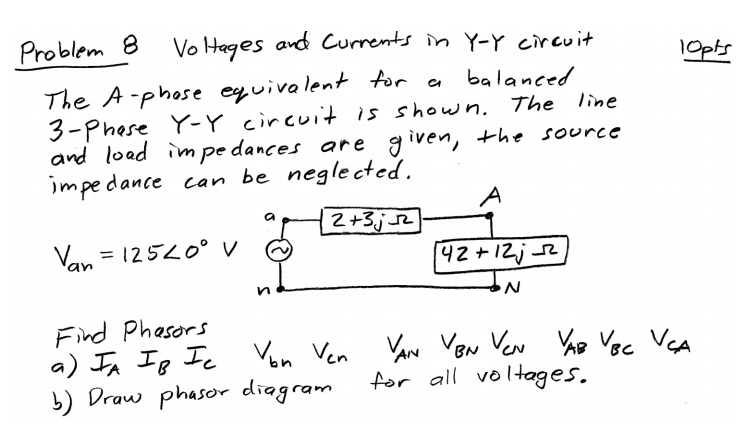 Problem 8 Voltages and Currents in Y-Y circuit 10pts
The A-phase equivalent for a balanced
3-Phase Y-Y circuit is shown. The line
and load impedances are given, the source
impedance can be neglected.
A
a 2+3j Ω
Van = 125∠0° V 42+12j Ω
n N
Find Phasors
a) IA IB IC Vbn Vcn VAN VBN VCN VAB VBC VCA
b) Draw phasor diagram for all voltages.